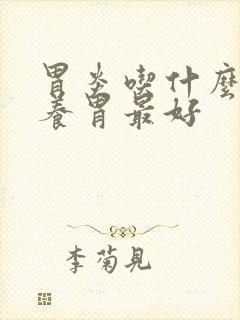 胃炎喫什麼
養胃最好
李菊見